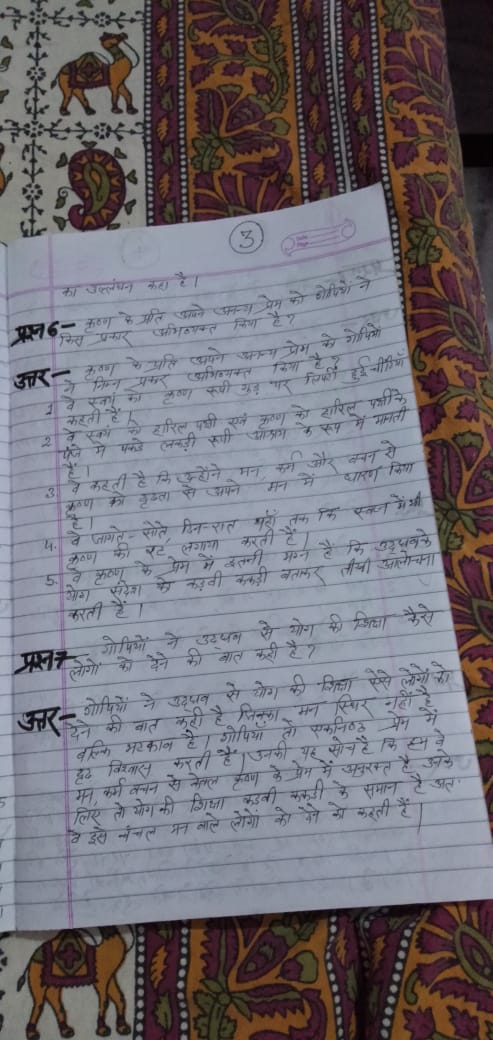 3
Date
Page
का उल्लंघन कहा है।
प्रश्न 6- कृष्ण के प्रति अपने अनन्य प्रेम को गोपियों ने
किस प्रकार अभिव्यक्त किया है?
उत्तर- कृष्ण के प्रति अपने अनन्य प्रेम को गोपियों
ने निम्न प्रकार अभिव्यक्त किया है?
1 वे स्वयं को कृष्ण रूपी गुड़ पर लिपटी हुई चींटियाँ
कहती हैं।
2 वे स्वयं को हारिल पक्षी एवं कृष्ण को हारिल पक्षी के
पंजे में पकड़े लकड़ी रूपी आश्रय के रूप में मानती
हैं।
3. वे कहती है कि उन्होंने मन, कर्म और वचन से
कृष्ण को दृढ़ता से अपने मन में धारण किया
है।
4. वे जागते-सोते, दिन-रात यहाँ तक कि स्वप्न में भी
कृष्ण की रट लगाया करती हैं।
5. वे कृष्ण के प्रेम में इतनी मग्न है कि उद्धव के
योग संदेश को कड़वी ककड़ी बताकर तीखी आलोचना
करती हैं।
प्रश्न 7- गोपियों ने उद्धव से योग की शिक्षा कैसे
लोगों को देने की बात कही है?
उत्तर- गोपियों ने उद्धव से योग की शिक्षा ऐसे लोगों को
देने की बात कही है जिनका मन स्थिर नहीं है
बल्कि भटकाव है। गोपियां तो एकनिष्ठ प्रेम में
दृढ़ विश्वास करती हैं। उनकी यह सोच है कि हम वे
मन, कर्म वचन से केवल कृष्ण के प्रेम में अनुरक्त है उनके
लिए तो योग की शिक्षा कड़वी ककड़ी के समान है अतः
वे इसे चंचल मन वाले लोगों को देने को कहती हैं।